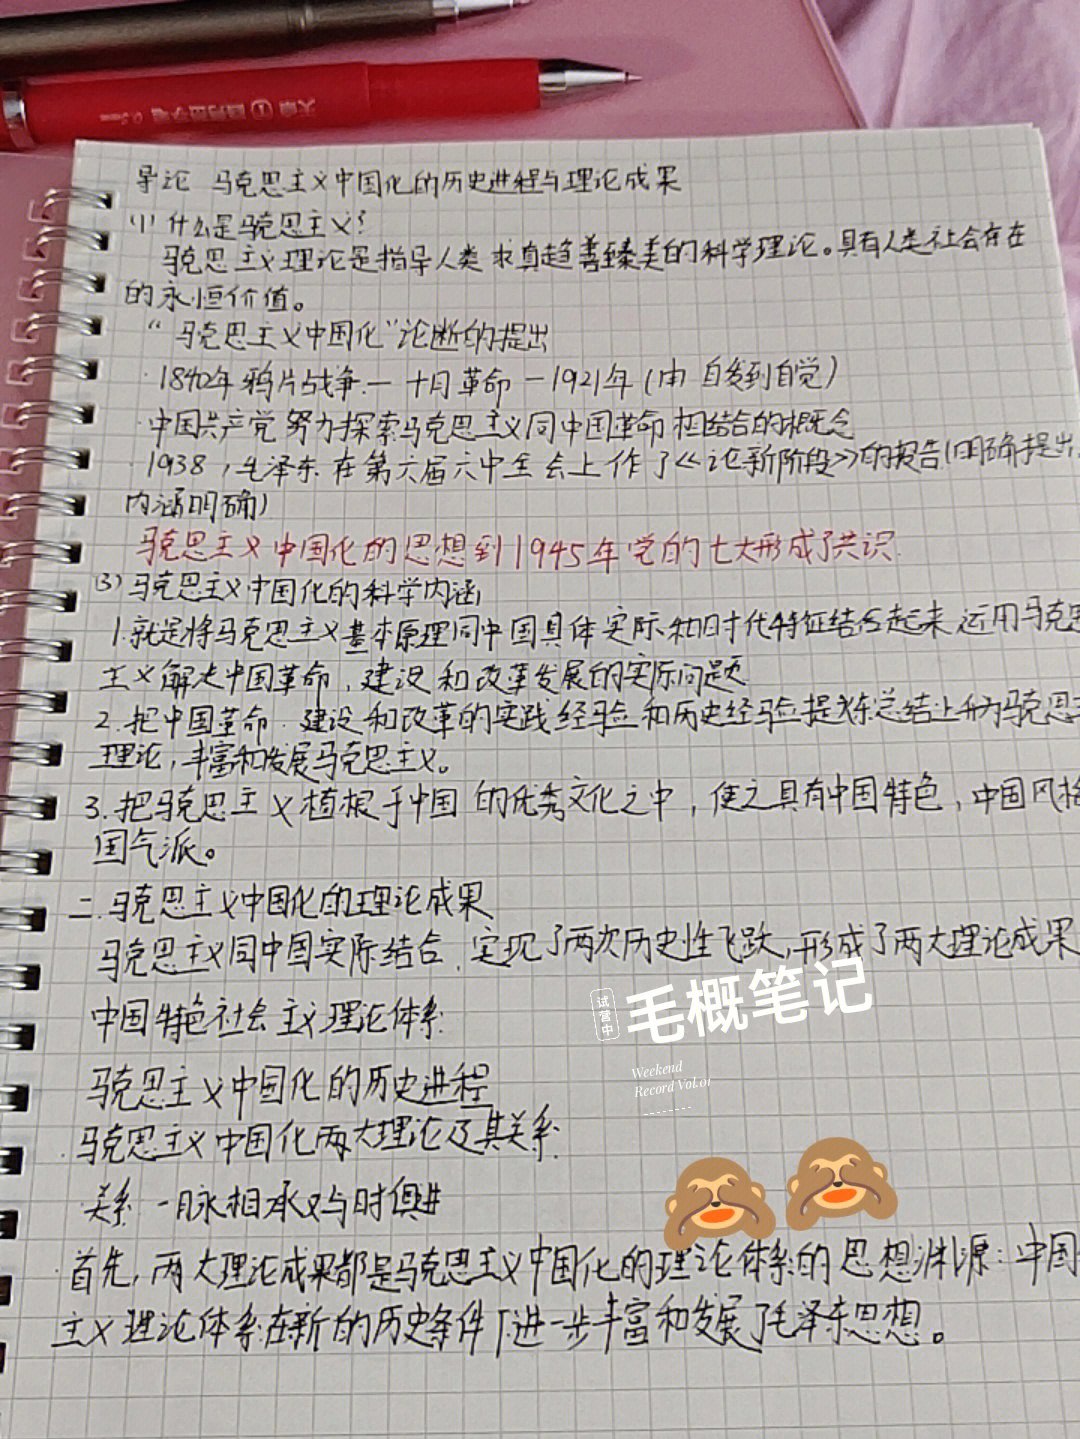 导论 马克思主义中国化的历史进程与理论成果
(1) 什么是马克思主义？
马克思主义理论是指导人类求真趋善臻美的科学理论。具有人类社会存在
的永恒价值。
“马克思主义中国化”论断的提出
1840年鸦片战争一十月革命一1921年(由自发到自觉)
中国共产党努力探索马克思主义同中国革命相结合的概念
1938，毛泽东在第六届六中全会上作了《论新阶段》的报告(明确提出
内涵明确)
马克思主义中国化的思想到1945年党的七大形成了共识
(3) 马克思主义中国化的科学内涵
1.就是将马克思主义基本原理同中国具体实际和时代特征结合起来 运用马克思
主义解决中国革命、建设和改革发展的实际问题
2.把中国革命、建设和改革的实践经验和历史经验提炼总结上升为马克思主
理论，丰富和发展马克思主义。
3.把马克思主义植根于中国的优秀文化之中，使之具有中国特色，中国风格
国气派。
二.马克思主义中国化的理论成果
马克思主义同中国实际结合，实现了两次历史性飞跃，形成了两大理论成果
中国特色社会主义理论体系
马克思主义中国化的历史进程
马克思主义中国化两大理论及其关系
关系 一脉相承又与时俱进
首先，两大理论成果都是马克思主义中国化的理论体系的思想渊源：中国
主义理论体系在新的历史条件下进一步丰富和发展了毛泽东思想。
试营中
毛概笔记
Weekend
Record Vol.01